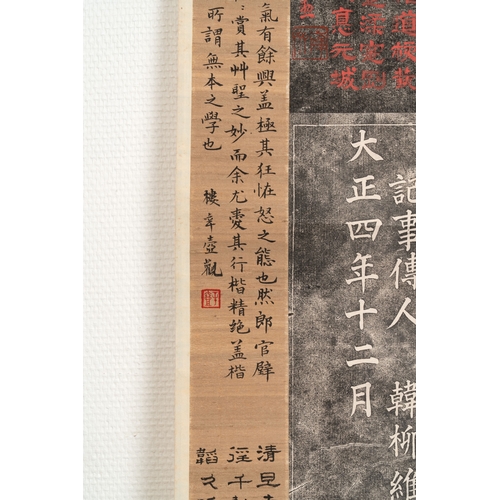 意元城
記事傳人 韓柳維
大正四年十二月
氣有餘興盖極其狂恠怒之態也然郎官壁
賞其艸聖之妙而余尤愛其行楷精绝盖楷
所謂無本之學也
樓辛壺觀
清旦
徑千
韜